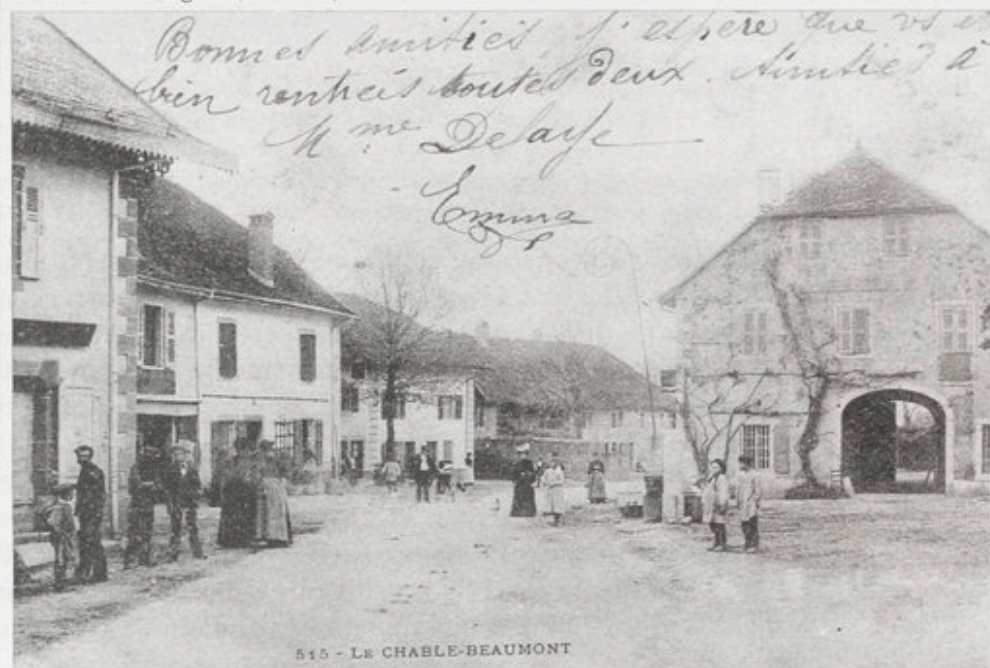 Bonnes Amitiés, j'espère que vs
bien rentrées toutes deux. Amitiés à
Mme Delasse
Emma
515 - LE CHABLE-BEAUMONT